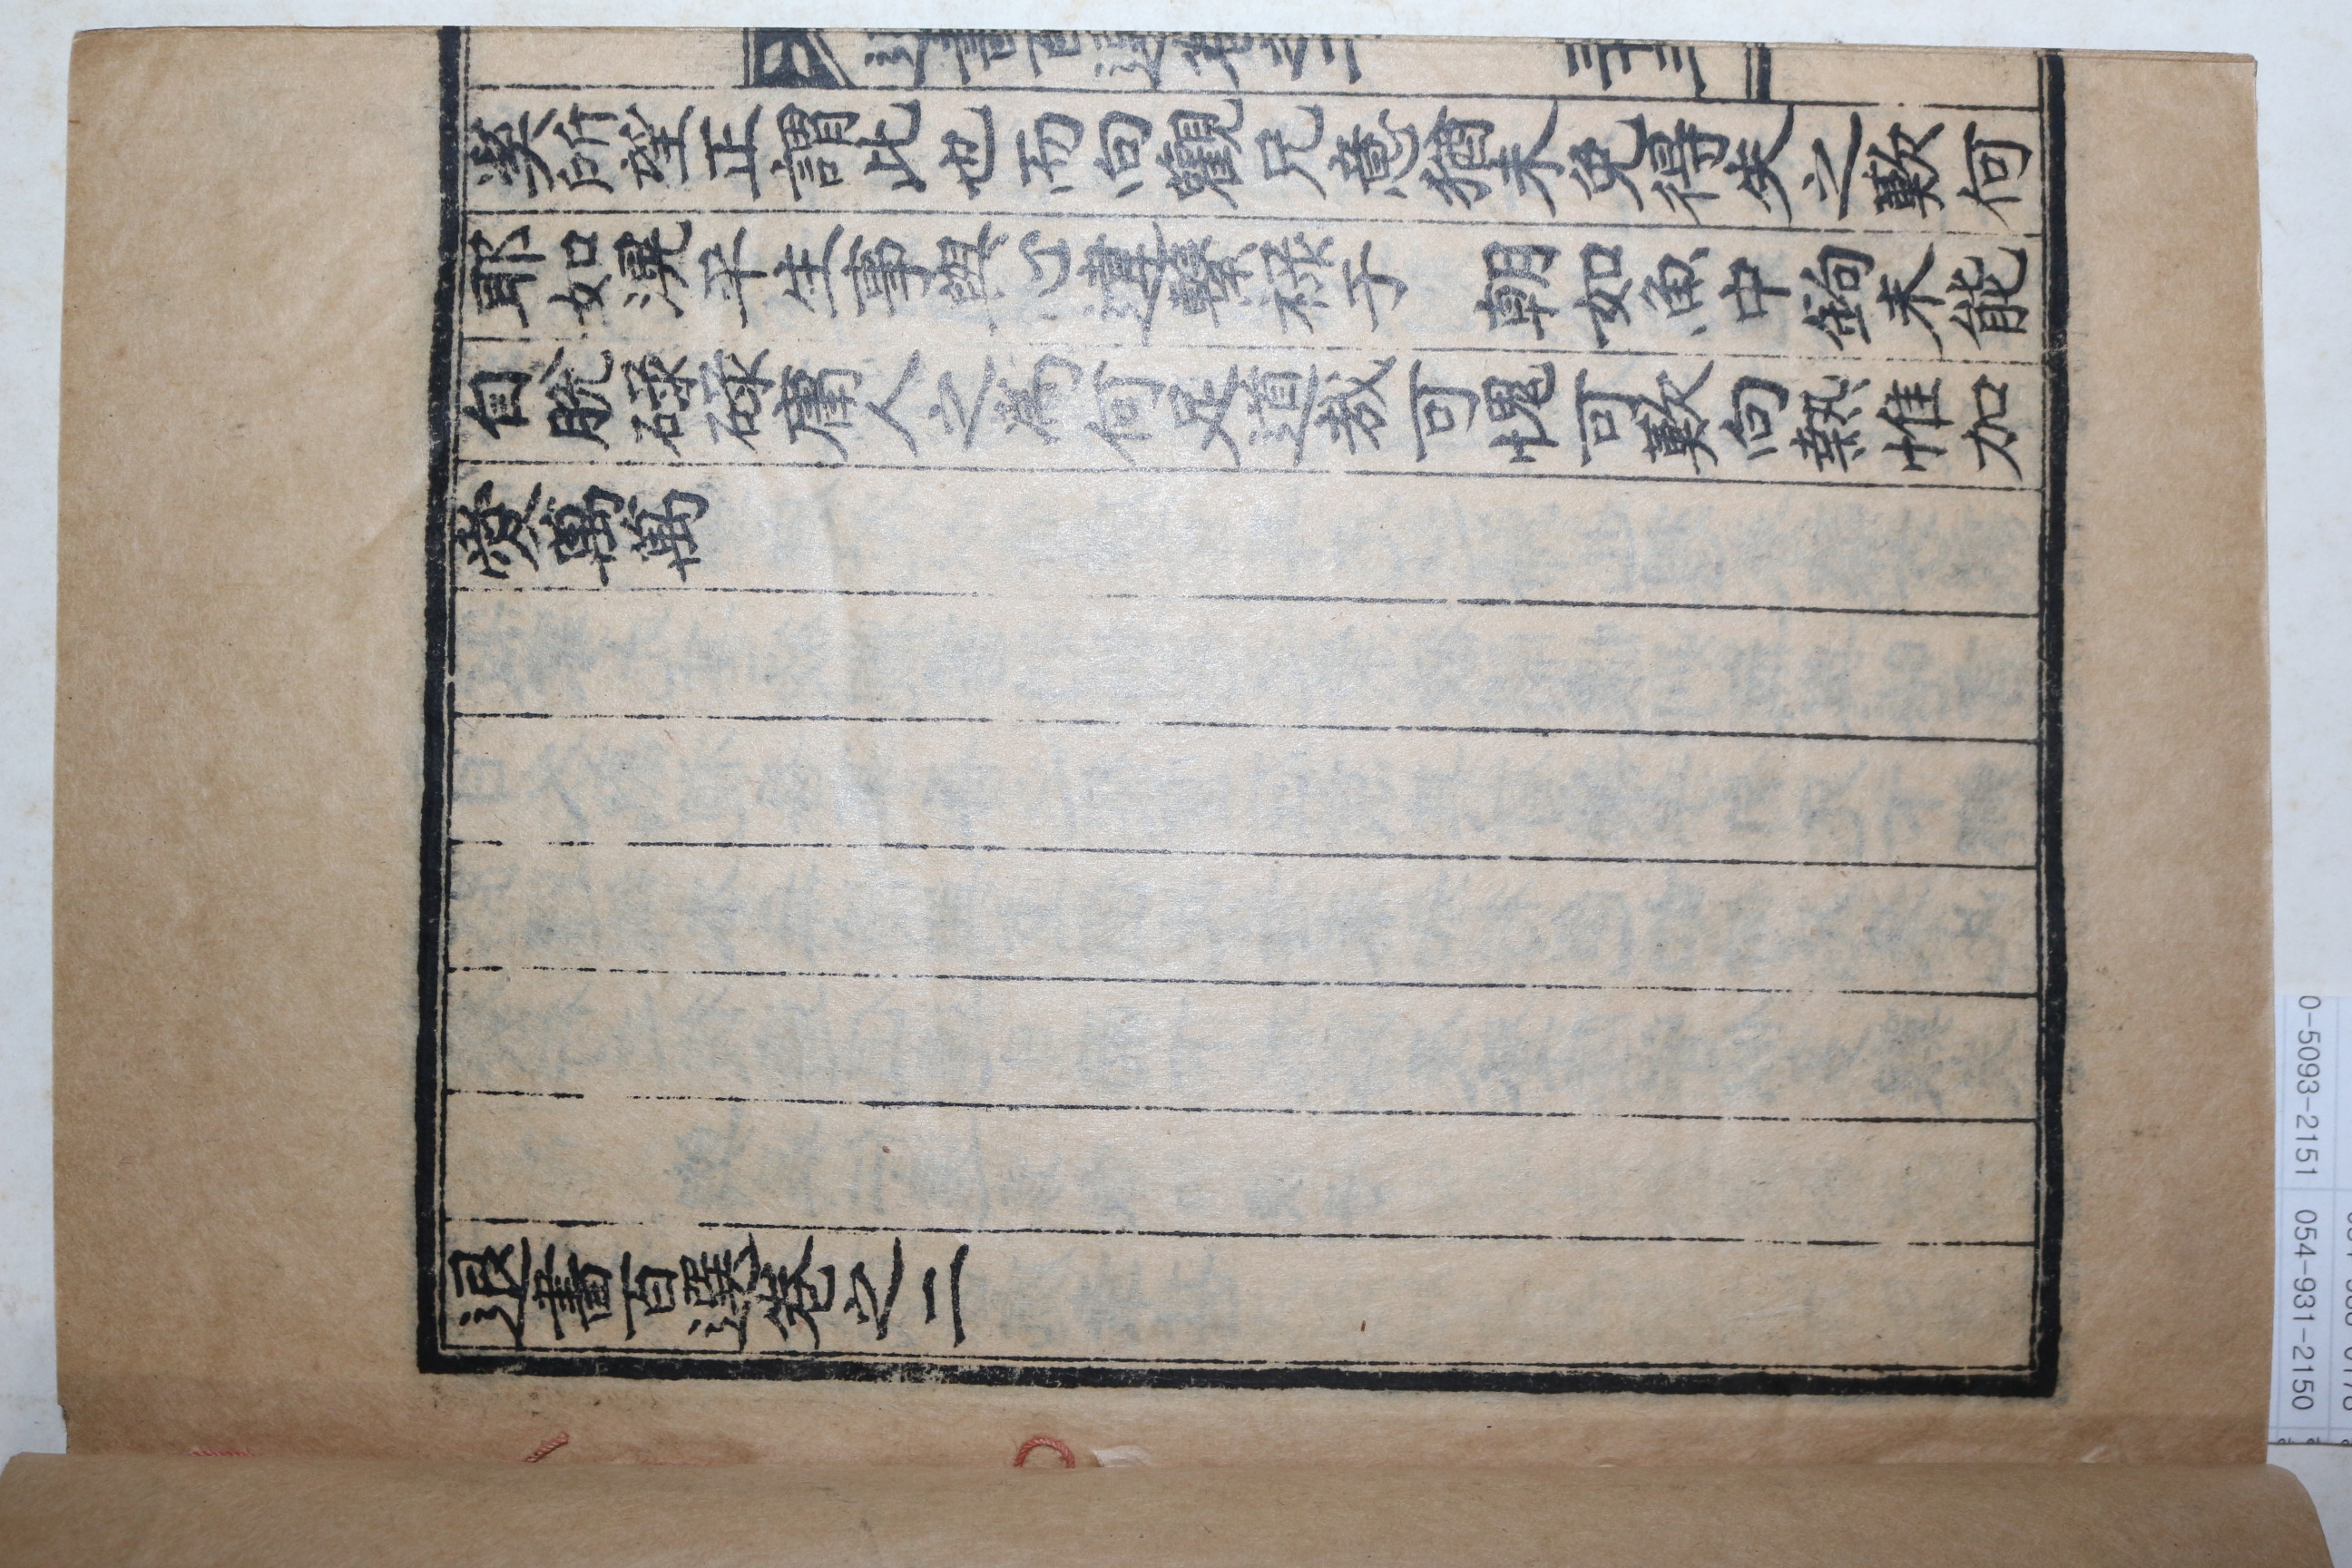 退書百選卷之二
三十三
奚所望正謂此也而向觀兄意猶未免得失之歎何
耶如滉平生事與心違繫祿于 朝如魚中鉤未能
自脫碌碌庸人之爲何足道哉可愧可歎向熱惟加
愛萬萬
退書百選卷之二
0-5093-2151
054-931-2150